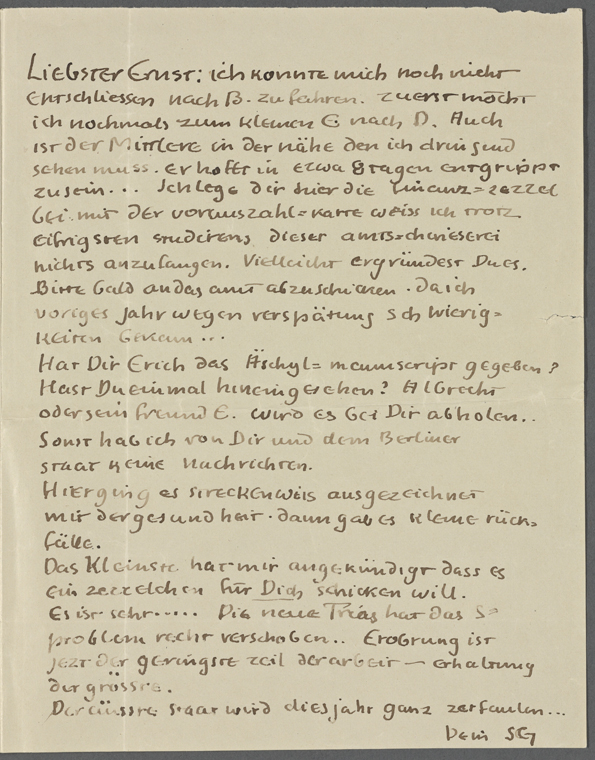 Liebster Ernst: ich konnte mich noch nicht
entschliessen nach B. zu fahren. zuerst möcht
ich nochmals zum kleinen E nach D. Auch
ist der Mittlere in der nähe den ich dringend
sehen muss. er hofft in etwa 8 tagen entgrippt
zu sein... Ich lege dir hier die finanz=zettel
bei. mit der vorauszahl=karte weiss ich trotz
eifrigsten studirens dieser amts=
nichts anzufangen. Vielleicht ergründest Du es.
Bitte bald an das amt abzuschicken. da ich
voriges Jahr wegen verspätung schwierig=
keiten bekam...
Hat Dir Erich das Äschyl=manuscript gegeben?
Hast Du einmal hineingesehen? Albrecht
oder sein freund E. wird es bei Dir abholen..
Sonst hab ich von Dir und dem Berliner
staat keine nachrichten.
Hier ging es streckenweis ausgezeichnet
mit der gesundheit. dann gab es kleine rück=
fälle.
Das Kleinste hat mir angekündigt dass es
ein zettelchen für Dich schicken will.
Es ist sehr..... Die neue Trias hat das S=
problem recht verschoben.. Eroberung ist
jezt der geringste teil der arbeit — erhaltung
der grösste.
Der äussre staat wird dies jahr ganz zerfallen...
Dein SG